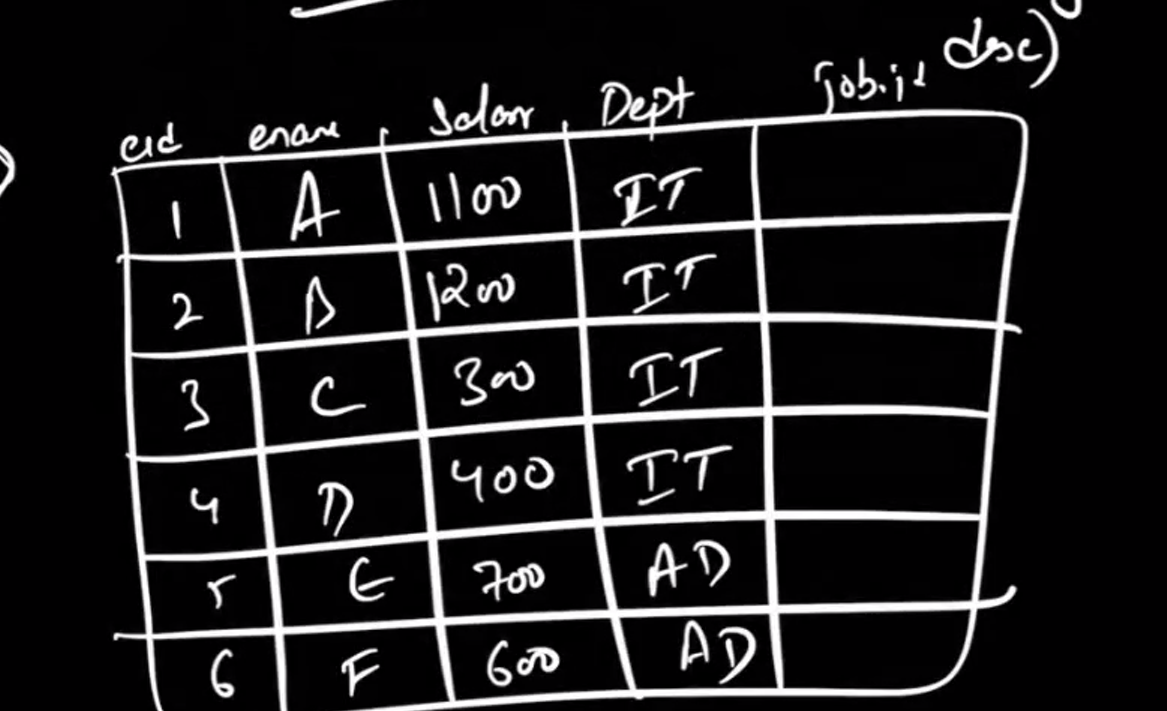 desc)
eid ename Salary Dept
1 A 1100 IT
2 B 1200 IT
3 C 300 IT
4 D 400 IT
5 E 700 AD
6 F 600 AD